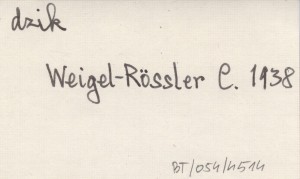 dzik
Weigel-Rössler C. 1938
BT/054/4514